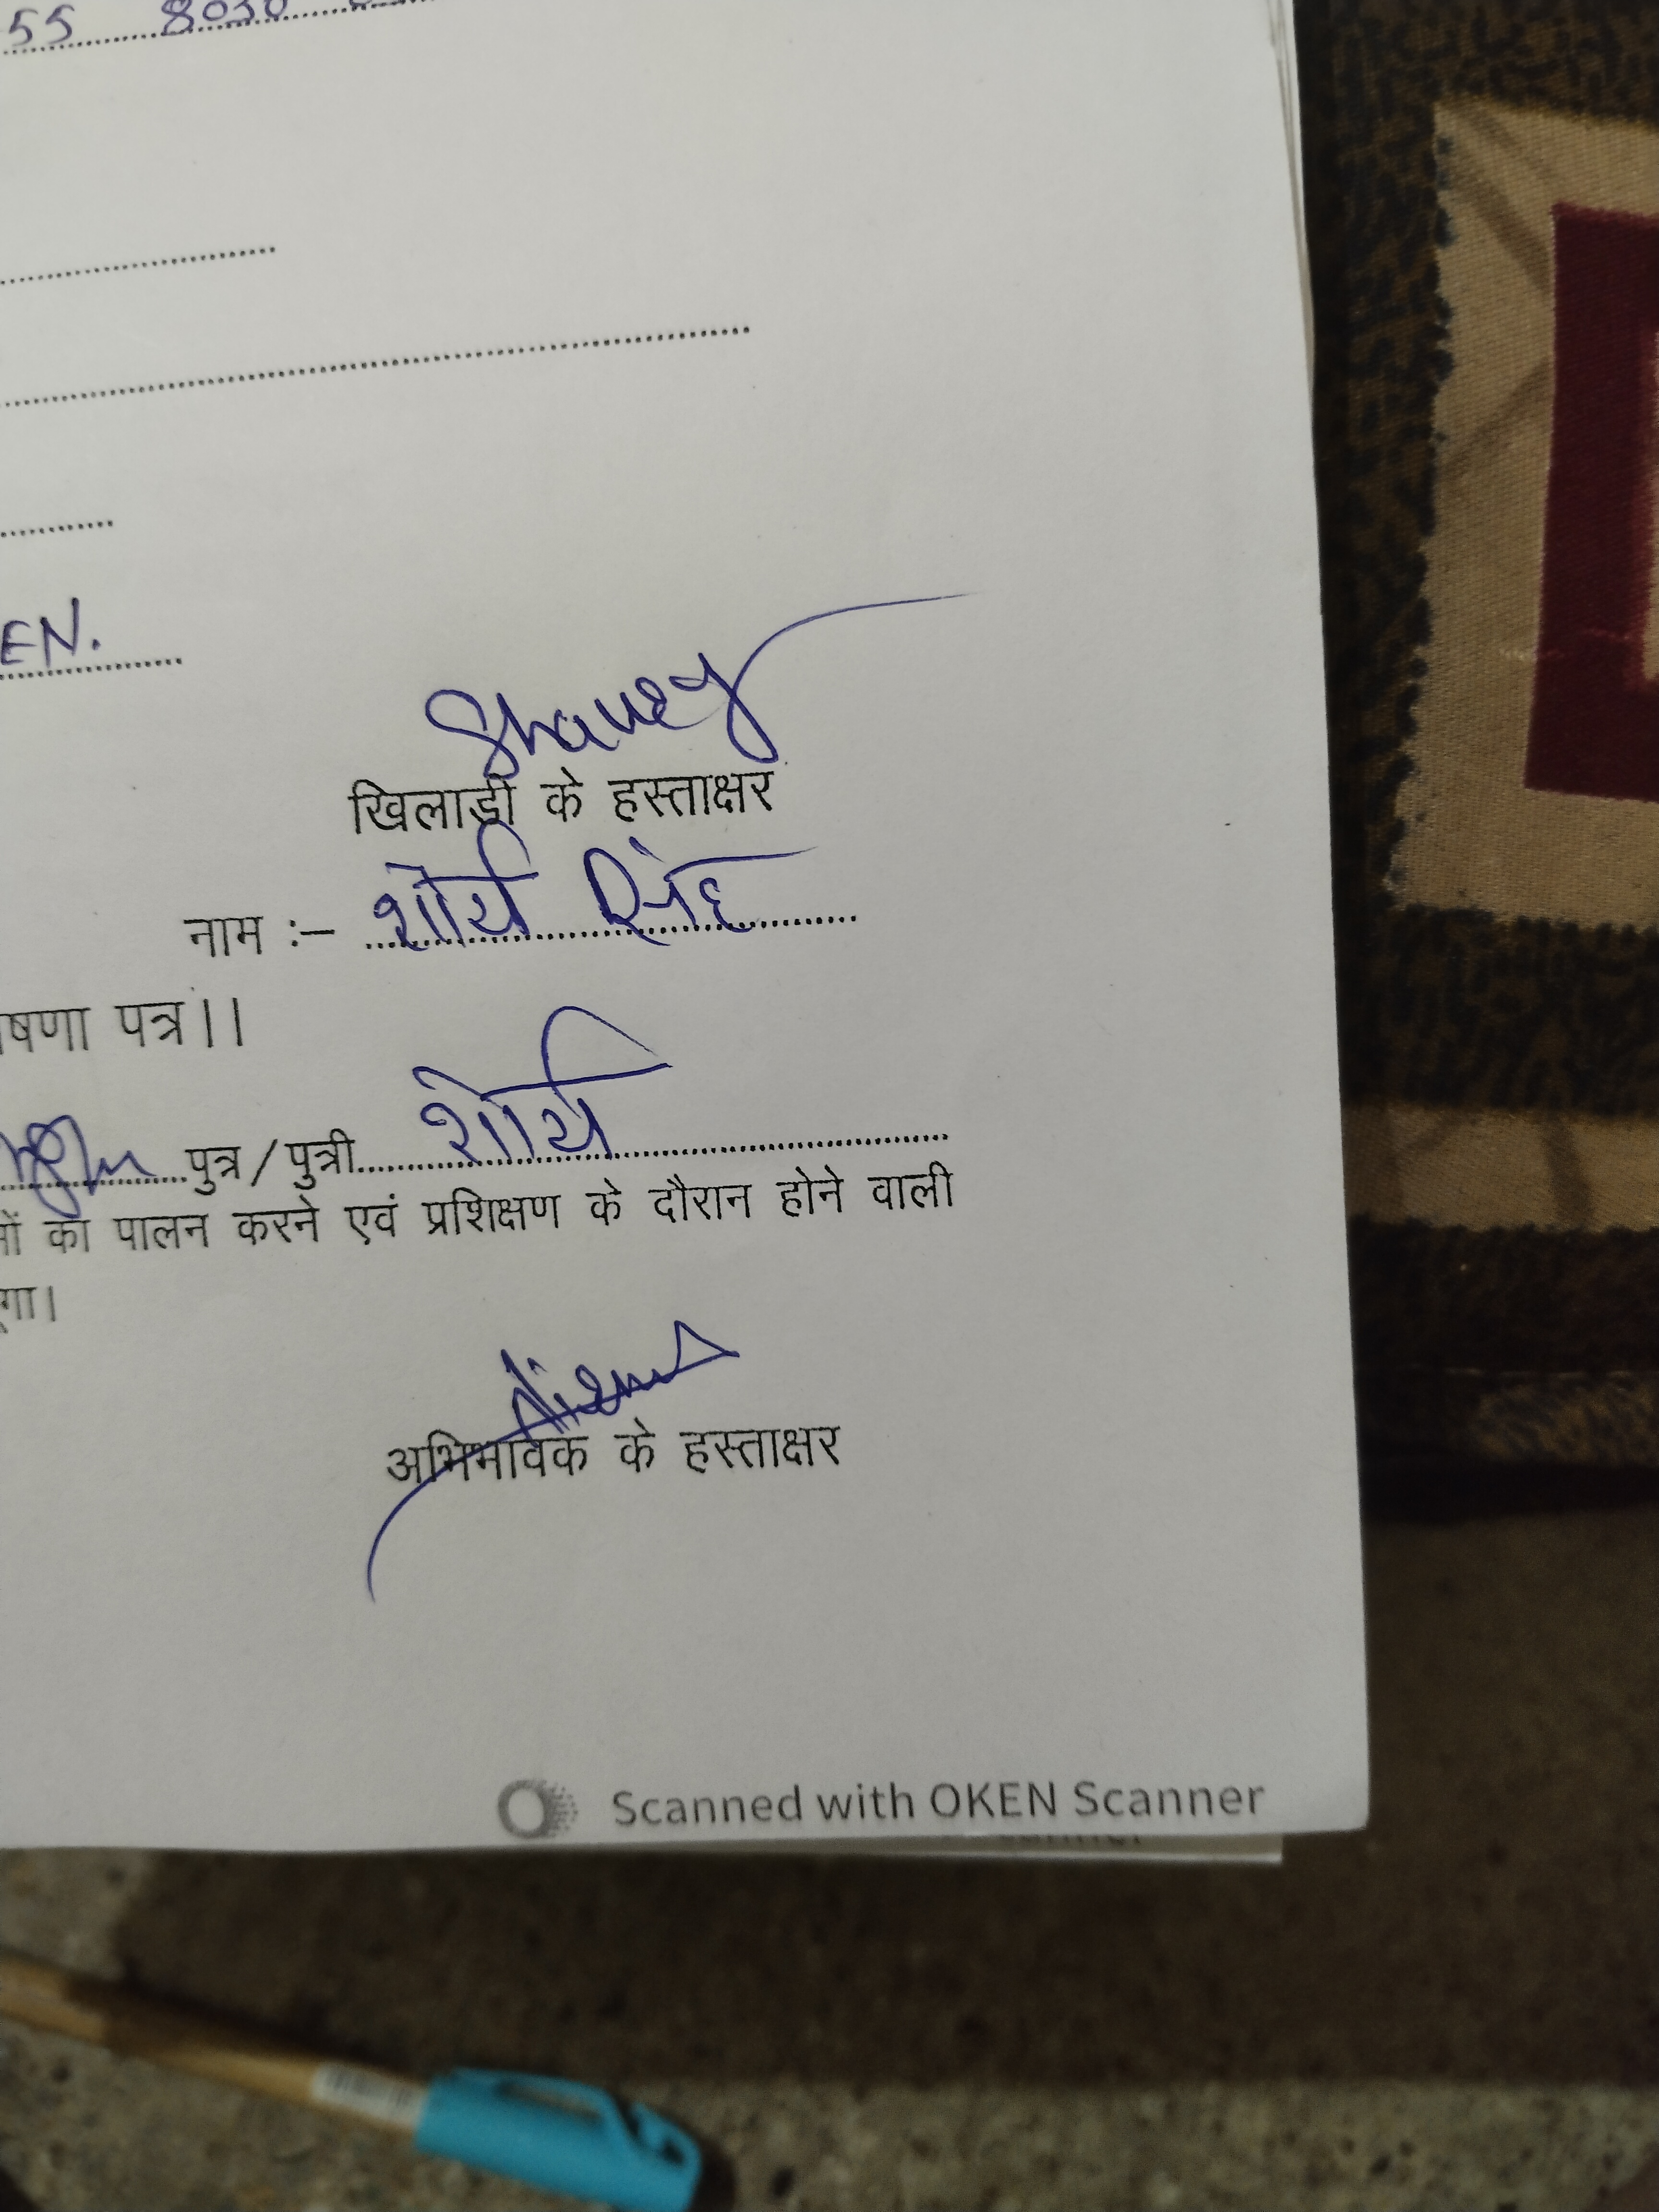 55 8030
EN.
Shaurey
खिलाडी के हस्ताक्षर
नाम :– शौर्य सिंह
षणा पत्र।।
पुत्र/पुत्री शौर्य
का पालन करने एवं प्रशिक्षण के दौरान होने वाली
गा।
अभिभावक के हस्ताक्षर
Scanned with OKEN Scanner